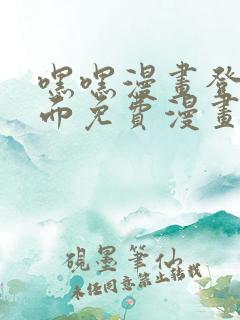 嘿嘿漫畫登
而免費漫畫
硯墨筆仙
未经同意禁止转载